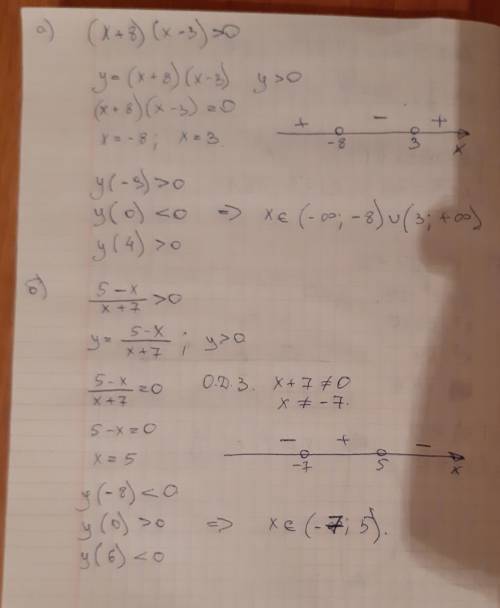 а) (x+8)(x-3)>0
y=(x+8)(x-3) y>0
(x+8)(x-3)=0
x=-8; x=3
+ - +
-8 3 x
y(-9)>0
y(0)<0 => x∈(-∞; -8)∪(3; +∞)
y(4)>0
б) 5-x/x+7>0
y=5-x/x+7; y>0
5-x/x+7=0 О.Д.З. x+7≠0
x≠-7.
5-x=0
x=5
- + -
-7 5 x
y(-8)<0
y(0)>0 => x∈(-7; 5).
y(6)<0